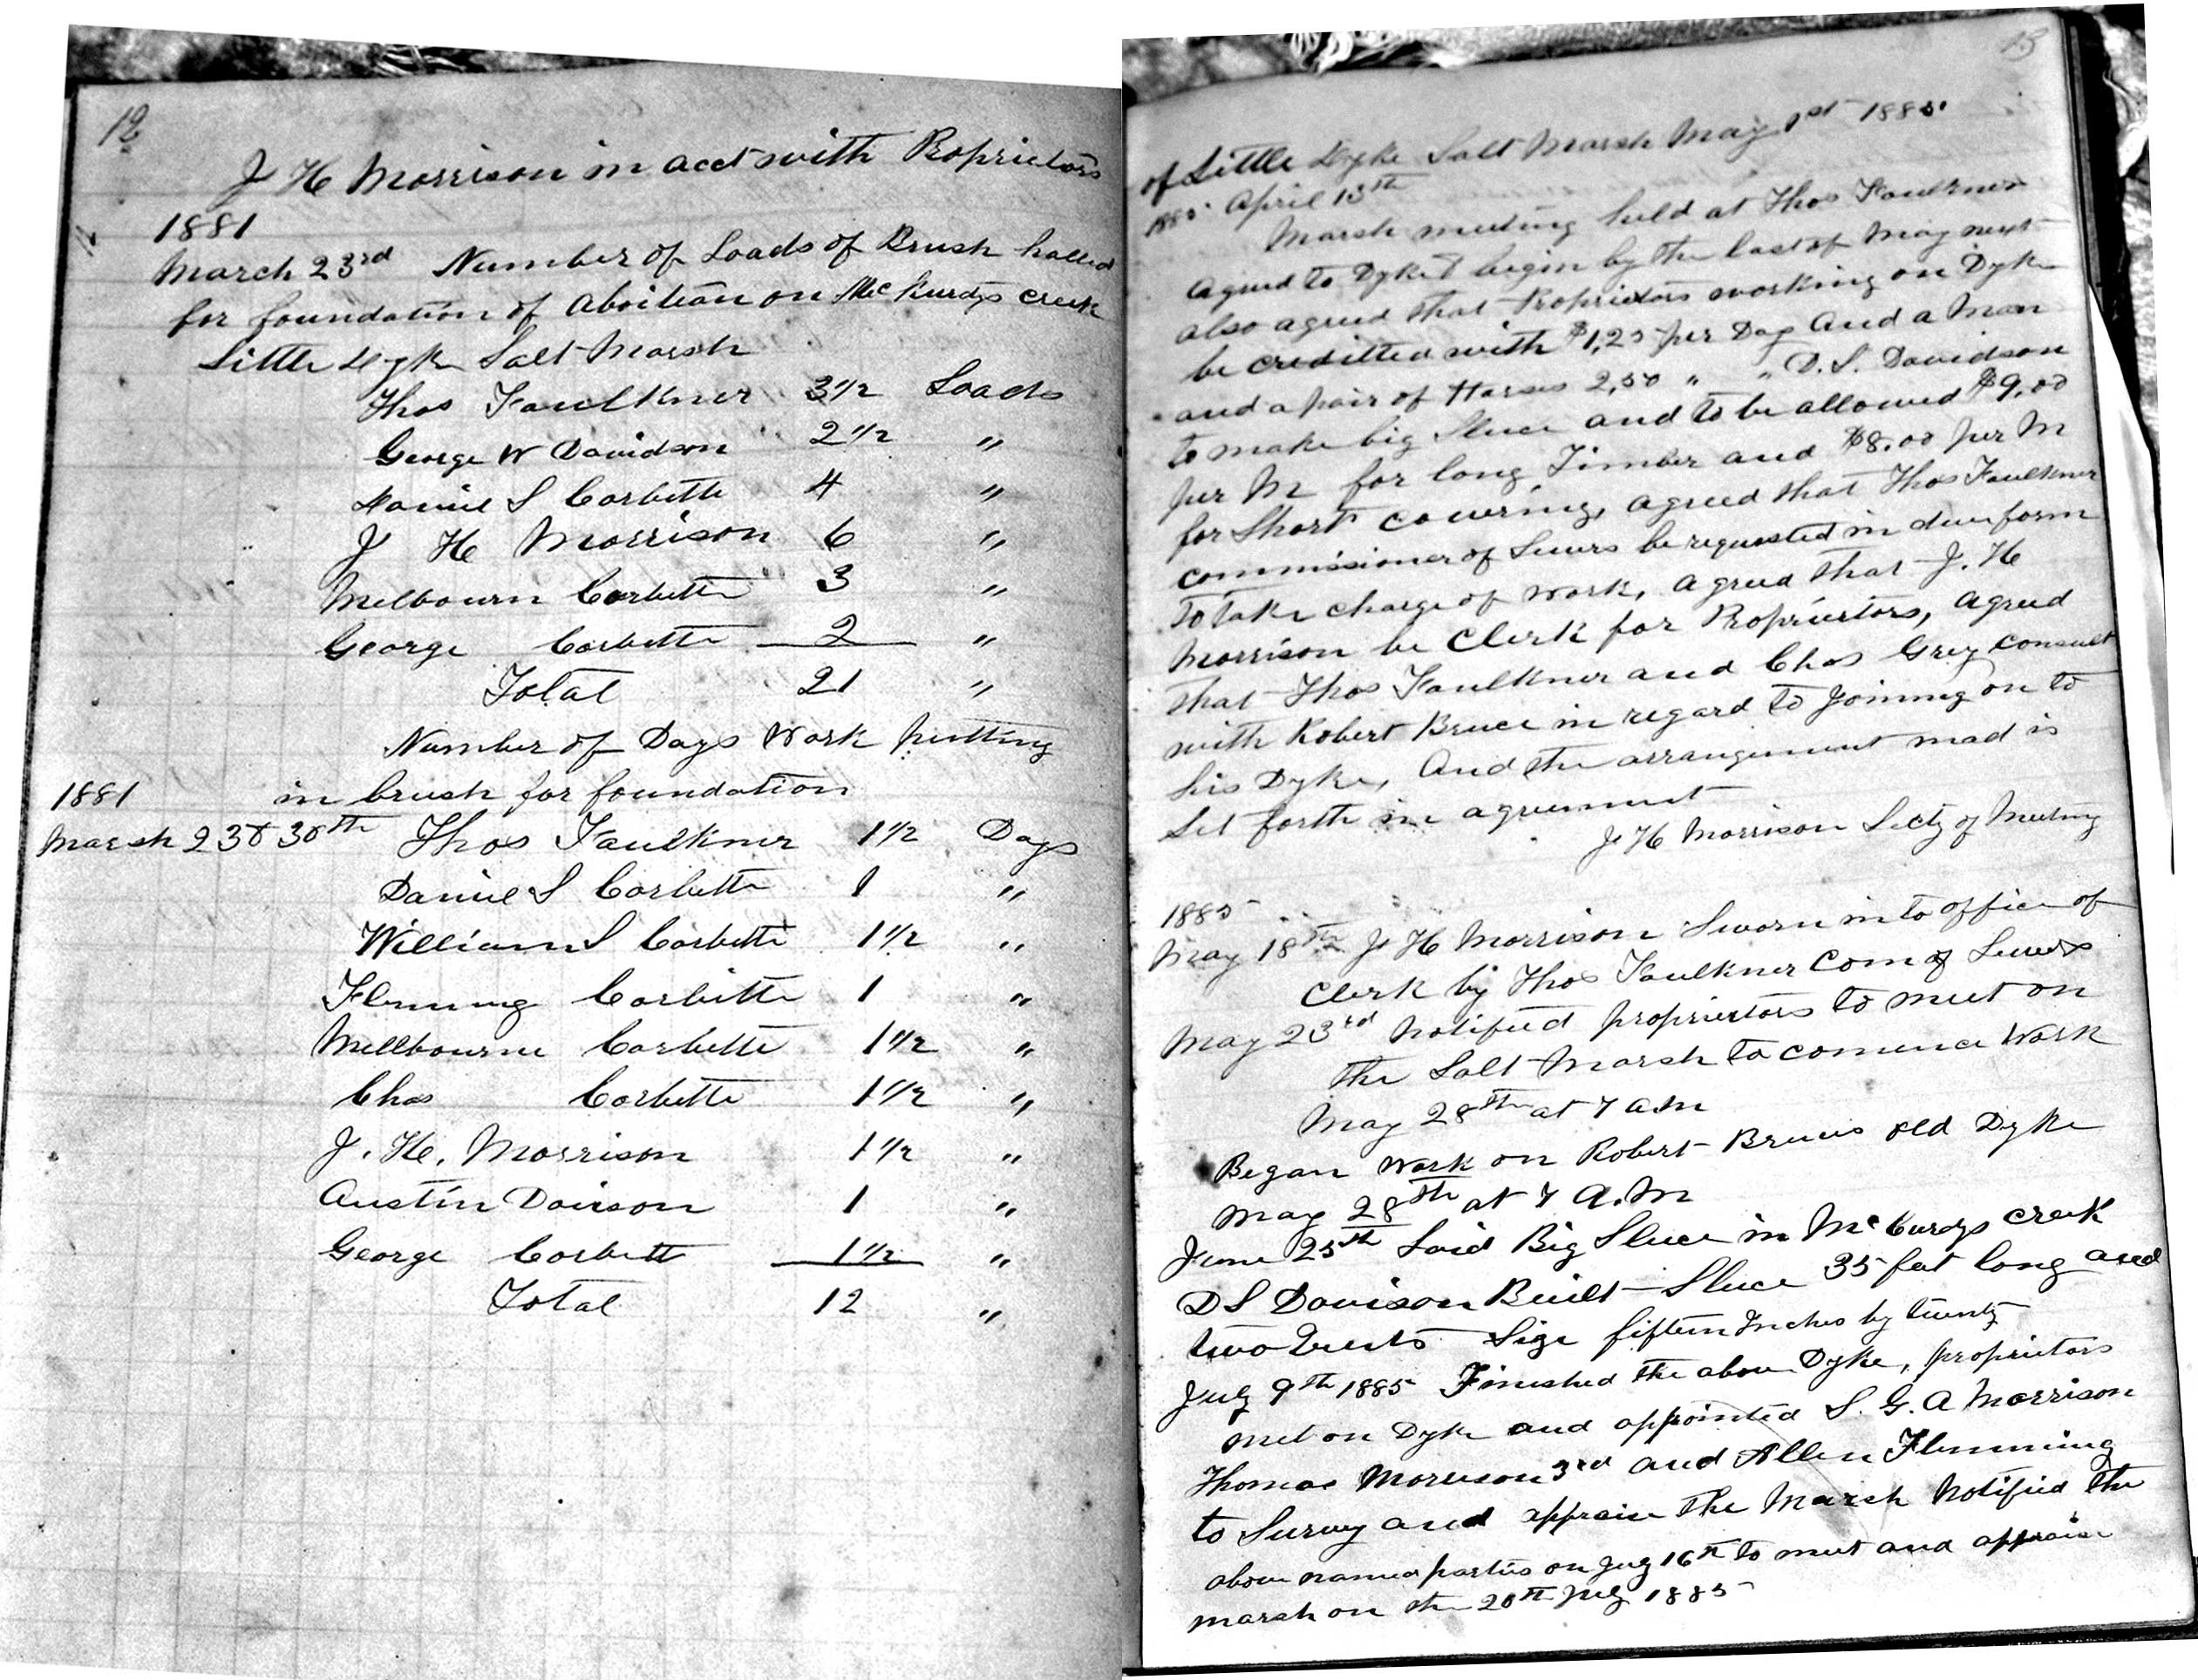 12
J H Morrison in acct with Proprietors
1881
March 23rd Number of Loads of Brush halled
for foundation of Aboitian on McKurdys creek
Little Dyke Salt Marsh
Thos Faulkner 3 1/2 Loads
George W Davidson 2 1/2 "
Daniel S Corbett 4 "
J H Morrison 6 "
Melbourn Corbett 3 "
George Corbett 2 "
Total 21 "
Number of Days Work putting
1881 in brush for foundation
March 23 & 30th Thos Faulkner 1 1/2 Days
Daniel S Corbett 1 "
William S Corbett 1 1/2 "
Flemming Corbett 1 "
Mellbourne Corbett 1 1/2 "
Chas Corbett 1 1/2 "
J. H. Morrison 1 1/2 "
Austin Davison 1 "
George Corbett 1 1/2 "
Total 12 "
13
of Little Dyke Salt Marsh May 1st 1885
1885 April 13th
Marsh meeting held at Thos Faulkner
Agreed to Dyke & begin by the last of May next
also agreed that Proprietors working on Dyke
be creditted with $1,25 per Day And a Man
and a pair of Horses 2,50 " " D. S. Davidson
to make big Sluce and to be allowed $9,00
per M for long Timber and $8.00 per M
for Short covering, agreed that Thos Faulkner
commissioner of Sewers be requested in due form
to take charge of work, agreed that J. H
Morrison be Clerk for Proprietors, agreed
that Thos Faulkner and Chas Grey consult
with Robert Bruce in regard to Joining on to
his Dyke, And the arrangement mad is
Set forth in agreement
J H Morrison Secty of Meeting
1885
May 18th J H Morrison Sworn in to office of
Clerk by Thos Faulkner Com of Sewers
May 23rd Notified proprietors to meet on
the Salt Marsh to comence Work
May 28th at 7 a.m
Began Work on Robert Bruces old Dyke
May 28th at 7 A.M
June 25th Laid Big Sluce in McCurdys creek
D S Davison Built Sluce 35 feet long and
two Vents Size fifteen Inches by twenty
July 9th 1885 Finished the above Dyke, proprietors
met on Dyke and appointed S. G. A Morrison
Thomas Morrison 3rd and Allen Flemming
to Survey and appraise the Marsh Notified the
above named parties on July 16th to meet and appraise
marsh on the 20th July 1885